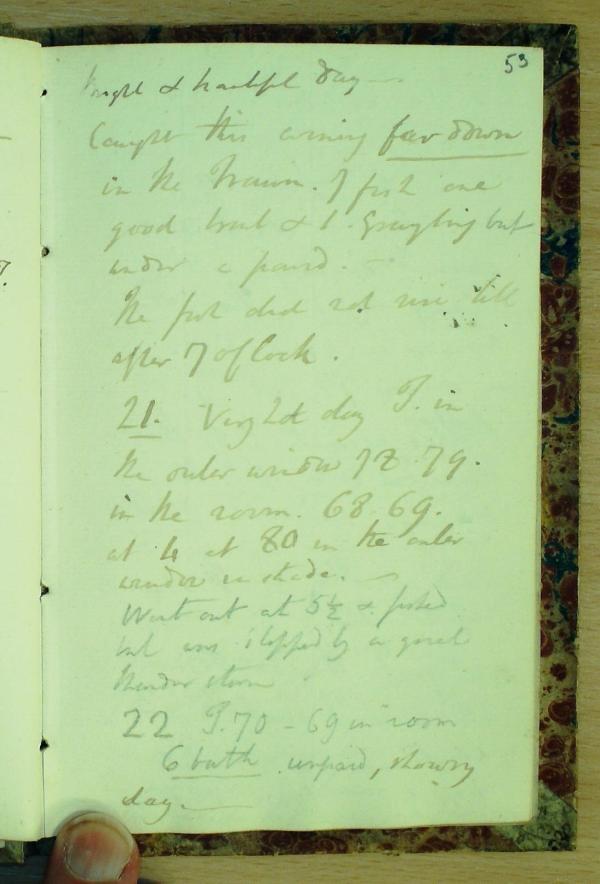 53
bright & beautiful day
Caught this evening far down
in the Traun. 7 fish one
good trout & 1. Grayling but
under a pound.
The fish did not rise till
after 7 oClock.
21. Very hot day T. in
the outer window 78. 79.
in the room. 68. 69.
at 4 at 80 in the outer
window in shade.
Went out at 5½ & fished
but was stopped by a great
thunder storm
22 T. 70 - 69 in room
6 bath unpaid, showry
day.